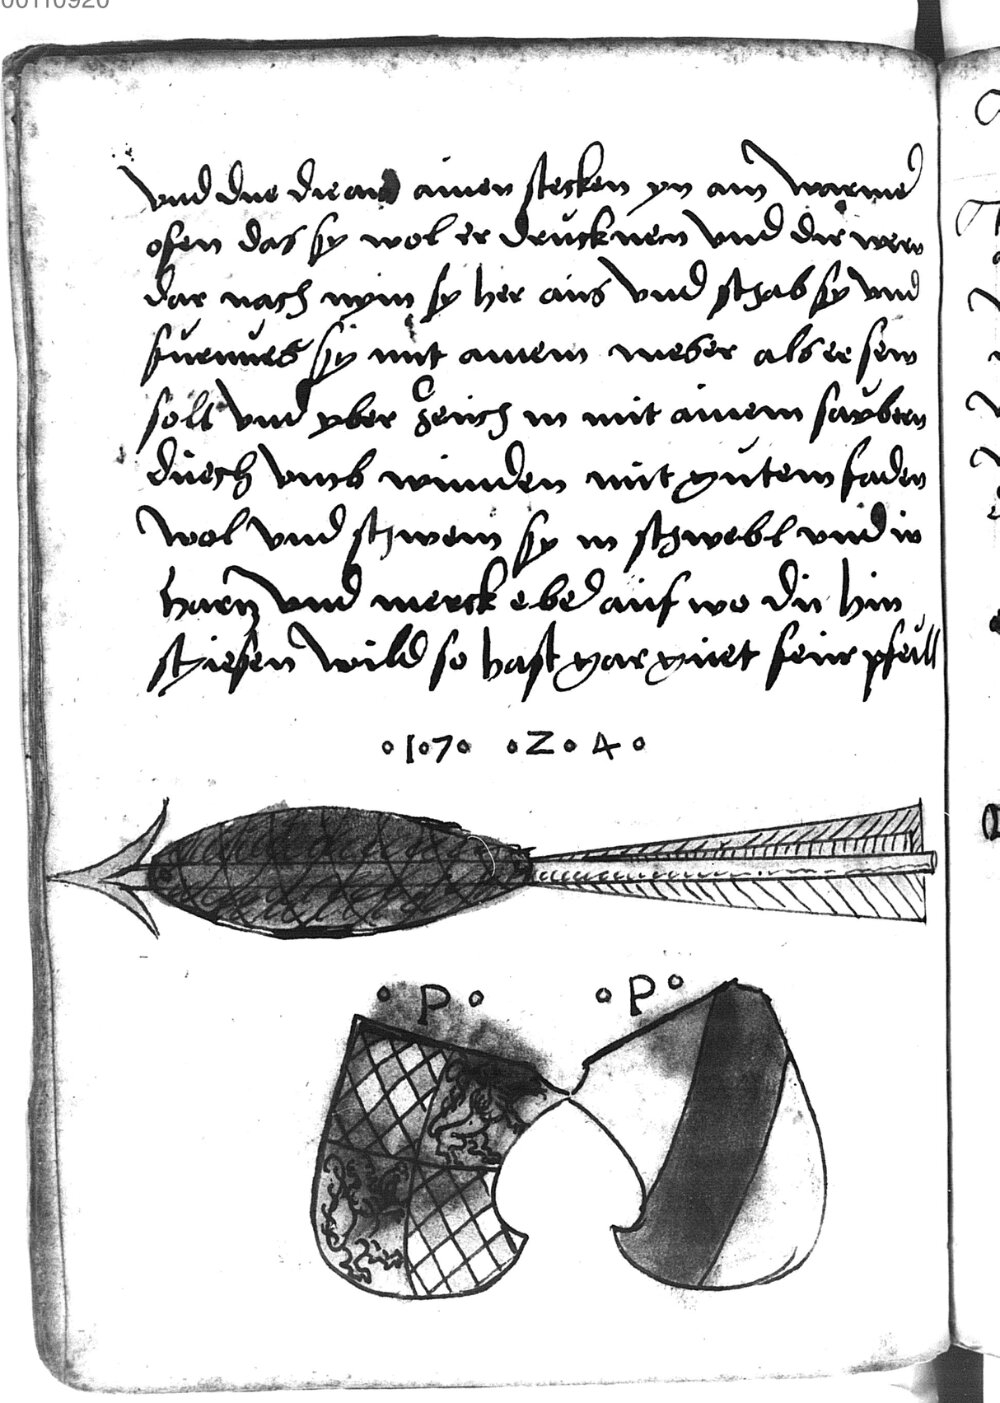 00110920
vnd due die an ainen stecken yn ain warmē
ofen das sy wol er drucknen vnd dir werē
dar nach nym sy her aus vnd schab sy vnd
sy mit ainem meser als er sein
soll vnd yber zeuch in mit ainem saubern
duech vmb winden mit gutem faden
wol vnd schwem sy in schwebl vnd in
harz vnd merck ebē auf wo du hin
schiesen wild so hast gar guet feir pfeill
∘1∘7∘ ∘Z∘4∘
∘P∘ ∘P∘